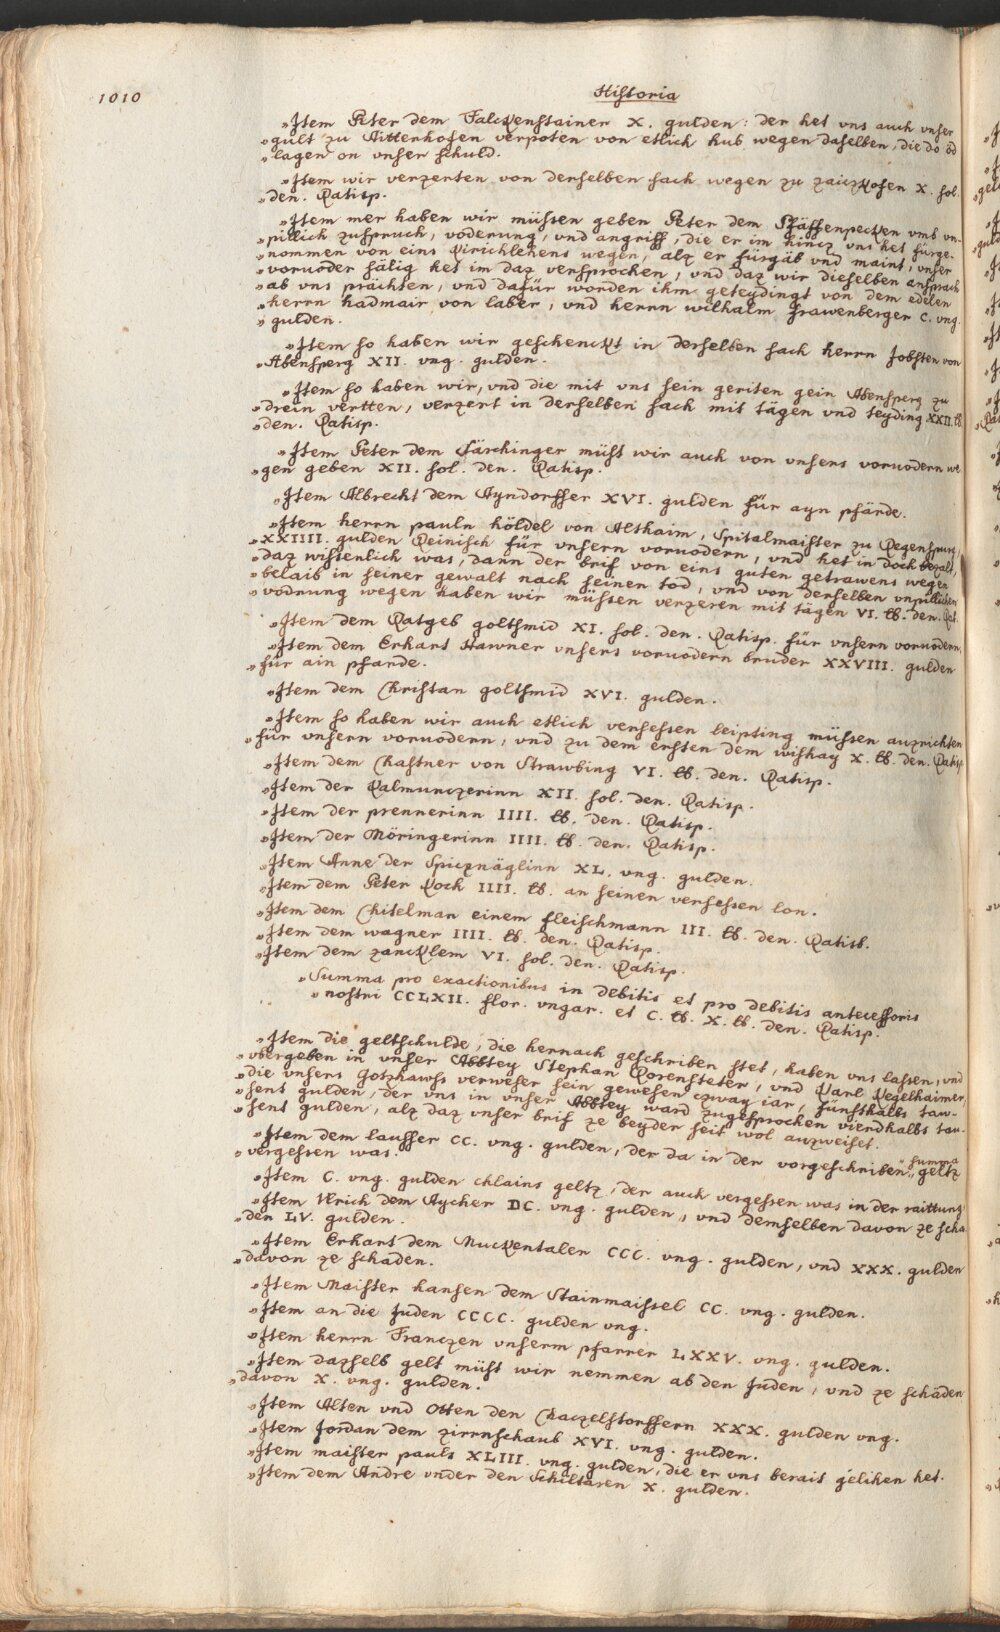 1010
Historia
»Item Peter dem Falckenstainer X. gulden: der het vns auch vnser
»gült zu Aittenhofen verpoten von etlich hub wegen daselben, die do öd
»lagen on vnser schuld.
»Item wir verzerten von derselben sach wegen zu zaiczkofen X. sol.
»den. Ratisp.
»Item mer haben wir müssen geben Peter dem Pfäffenpecken vmb vn-
»pillich zuspruch, voderung, vnd angriff, die er im hincz vns het fürge-
»nommen von eins Kirichlehens wegen, alz er fürgäb vnd maint, vnser
»voruoder sälig het im daz versprochen, vnd daz wir dieselben ansprach
»ab vns prächten, vnd dafür worden ihm geteydingt von dem edelen
»herrn hadmair von laber, vnd herrn wilhalm frawenberger C. vng.
»gulden.
»Item so haben wir geschenckt in derselben sach herrn Jobsten von
»Abensperg XII. vng. gulden.
»Item so haben wir, vnd die mit vns sein geriten gein Abensperg zu
»drein vertten, verzert in derselben sach mit tägen vnd teyding XXII. lb.
»den. Ratisp.
»Item Peter dem Särchinger müst wir auch von vnsers voruodern we
»gen geben XII. sol. den. Ratisp.
»Item Albrecht dem Ayndorffer XVI. gulden für ayn pfärde.
»Item herrn pauln höldel von Althaim, Spitalmaister zu Regenspurg
»XXIIII. gulden Reinisch für vnsern voruodern, vnd het in doch bezalt,
»daz wissenlich was, dann der brif von eins guten getrawens wegen
»belaib in seiner gewalt nach seinen tod, vnd von derselben vnpillichen
»vodrung wegen haben wir müssen verzeren mit tägen VI. lb. den. Rat.
»Item dem Ratgeb goltsmid XI. sol. den. Ratisp. für vnsern voruodern.
»Item dem Erhart Hawner vnsers voruodern bruder XXVIII. gulden
»für ain pfarde.
»Item dem Christan goltsmid XVI. gulden.
»Item so haben wir auch etlich versessen leipting müssen auzrichten
»für vnsern voruodern, vnd zu dem ersten dem wishay X. lb. den. Ratisp.
»Item dem Chastner von Strawbing VI. lb. den. Ratisp.
»Item der Ralmunczerinn XII. sol. den. Ratisp.
»Item der prennerinn IIII. lb. den. Ratisp.
»Item der Möringerinn IIII. lb. den. Ratisp.
»Item Anne der Spicznäglinn XL. vng. gulden.
»Item dem Peter Koch IIII. lb. an seinen versessen lon.
»Item dem Chitelman einem fleischmann III. lb. den. Ratisb.
»Item dem wagner IIII. lb. den. Ratisp.
»Item dem zancklem VI. sol. den. Ratisp.
»Summa pro exactionibus in debitis et pro debitis antecessoris
»nostri CCLXII. flor. vngar. et C. lb. X. lb. den. Ratisp.
»Item die geltschulde, die hernach geschriben stet, haben vns lassen, vnd
»vbergeben in vnser Abbtey Stephan Rorensteter, vnd Karl Kegelhaimer,
»die vnsers Gotzhawss verweser sein gewesen czway iar, fünfthalbs taw-
»sent gulden, der vns in vnser Abbtey ward zugesprochen vierdhalbs tau-
»sent gulden, alz daz vnser brif ze beyder seit wol auzweiset.
»Item dem lauffer CC. vng. gulden, der da in der vorgeschriben summa geltz
»vergessen was.
»Item C. vng. gulden chlains geltz, der auch vergessen was in der raittung
»Item Vlrich dem Aycher DC. vng. gulden, vnd demselben davon ze scha
»den LV. gulden.
»Item Erhart dem Muckentaler CCC. vng. gulden, vnd XXX. gulden
»davon ze schaden.
»Item Maister hansen dem Stainmaissel CC. vng. gulden.
»Item an die Juden CCCC. gulden vng.
»Item herrn Franczen vnserm pfarrer LXXV. vng. gulden.
»Item dazselb gelt müst wir nemmen ab den Juden, vnd ze schäden
»davon X. vng. gulden.
»Item Alten vnd Otten den Chaczelstorffern XXX. gulden vng.
»Item Jordan dem zirrnschaub XVI. vng. gulden.
»Item maister pauls XLIII. vng. gulden, die er vns berait gelihen het.
»Item dem Andre vnder den Schiltaren X. gulden.